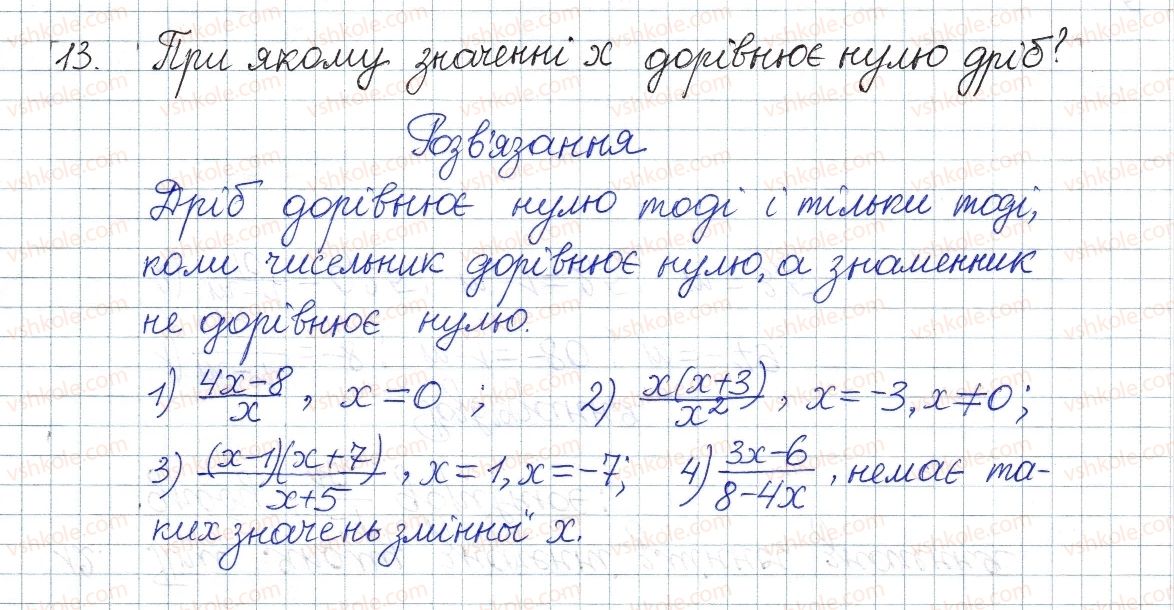 13. При якому значенні x дорівнює нулю дріб?
Розв'язання
Дріб дорівнює нулю тоді і тільки тоді,
коли чисельник дорівнює нулю, а знаменник
не дорівнює нулю.
1) (4x-8)/x, x=0 ; 2) x(x+3)/x², x=-3, x≠0;
3) (x-1)(x+7)/(x+5), x=1, x=-7; 4) (3x-6)/(8-4x), немає та-
ких значень змінної x.